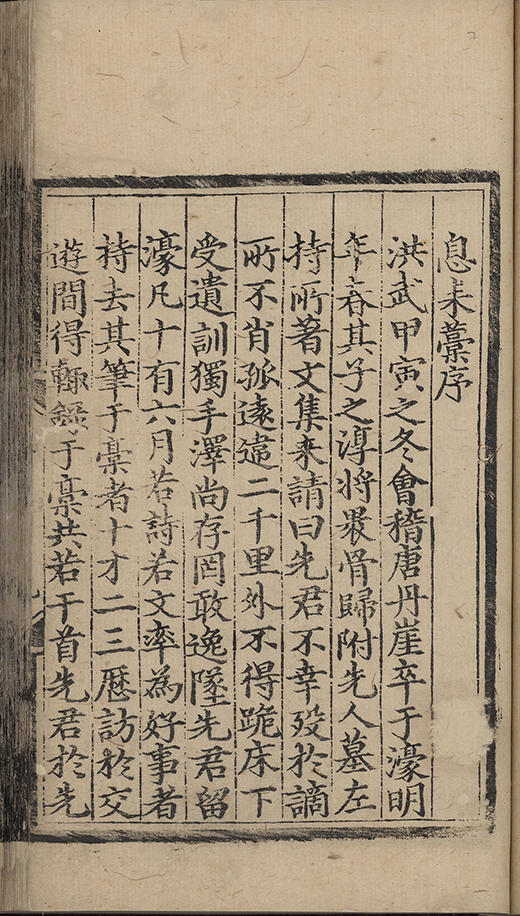 息耒藁序
洪武甲寅之冬會稽唐丹崖卒于濠明
年春其子之淳將褁骨歸附先人墓左
持所著文集來請曰先君不幸歿於謫
所不肖孤遠違二千里外不得跪床下
受遺訓獨手澤尚存罔敢逸墜先君留
濠凡十有六月若詩若文率為好事者
持去其筆于藁者十才二三歷訪於交
遊間得輙錄于藁共若干首先君於先